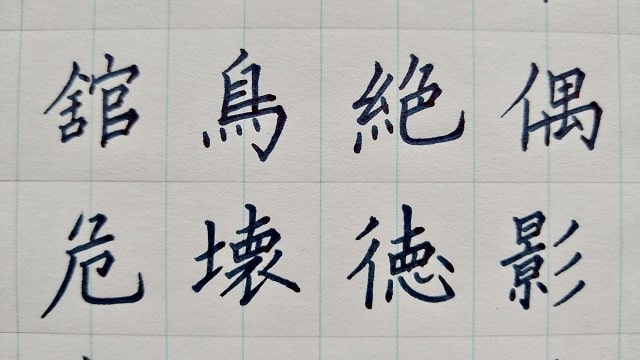 舘鳥絶偶
危壊徳影